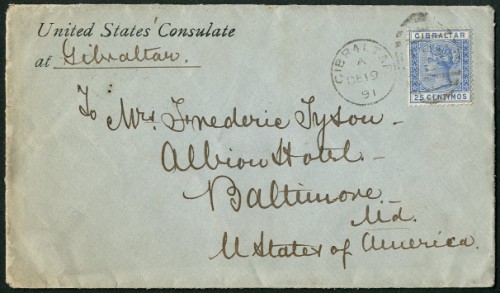 United States' Consulate
at Gibraltar.
GIBRALTAR
A
DE 19
91
GIBRALTAR
25 CENTIMOS
To Mrs. Frederic Tyson-
Albion Hotel-
Baltimore
Md.
U States of America.